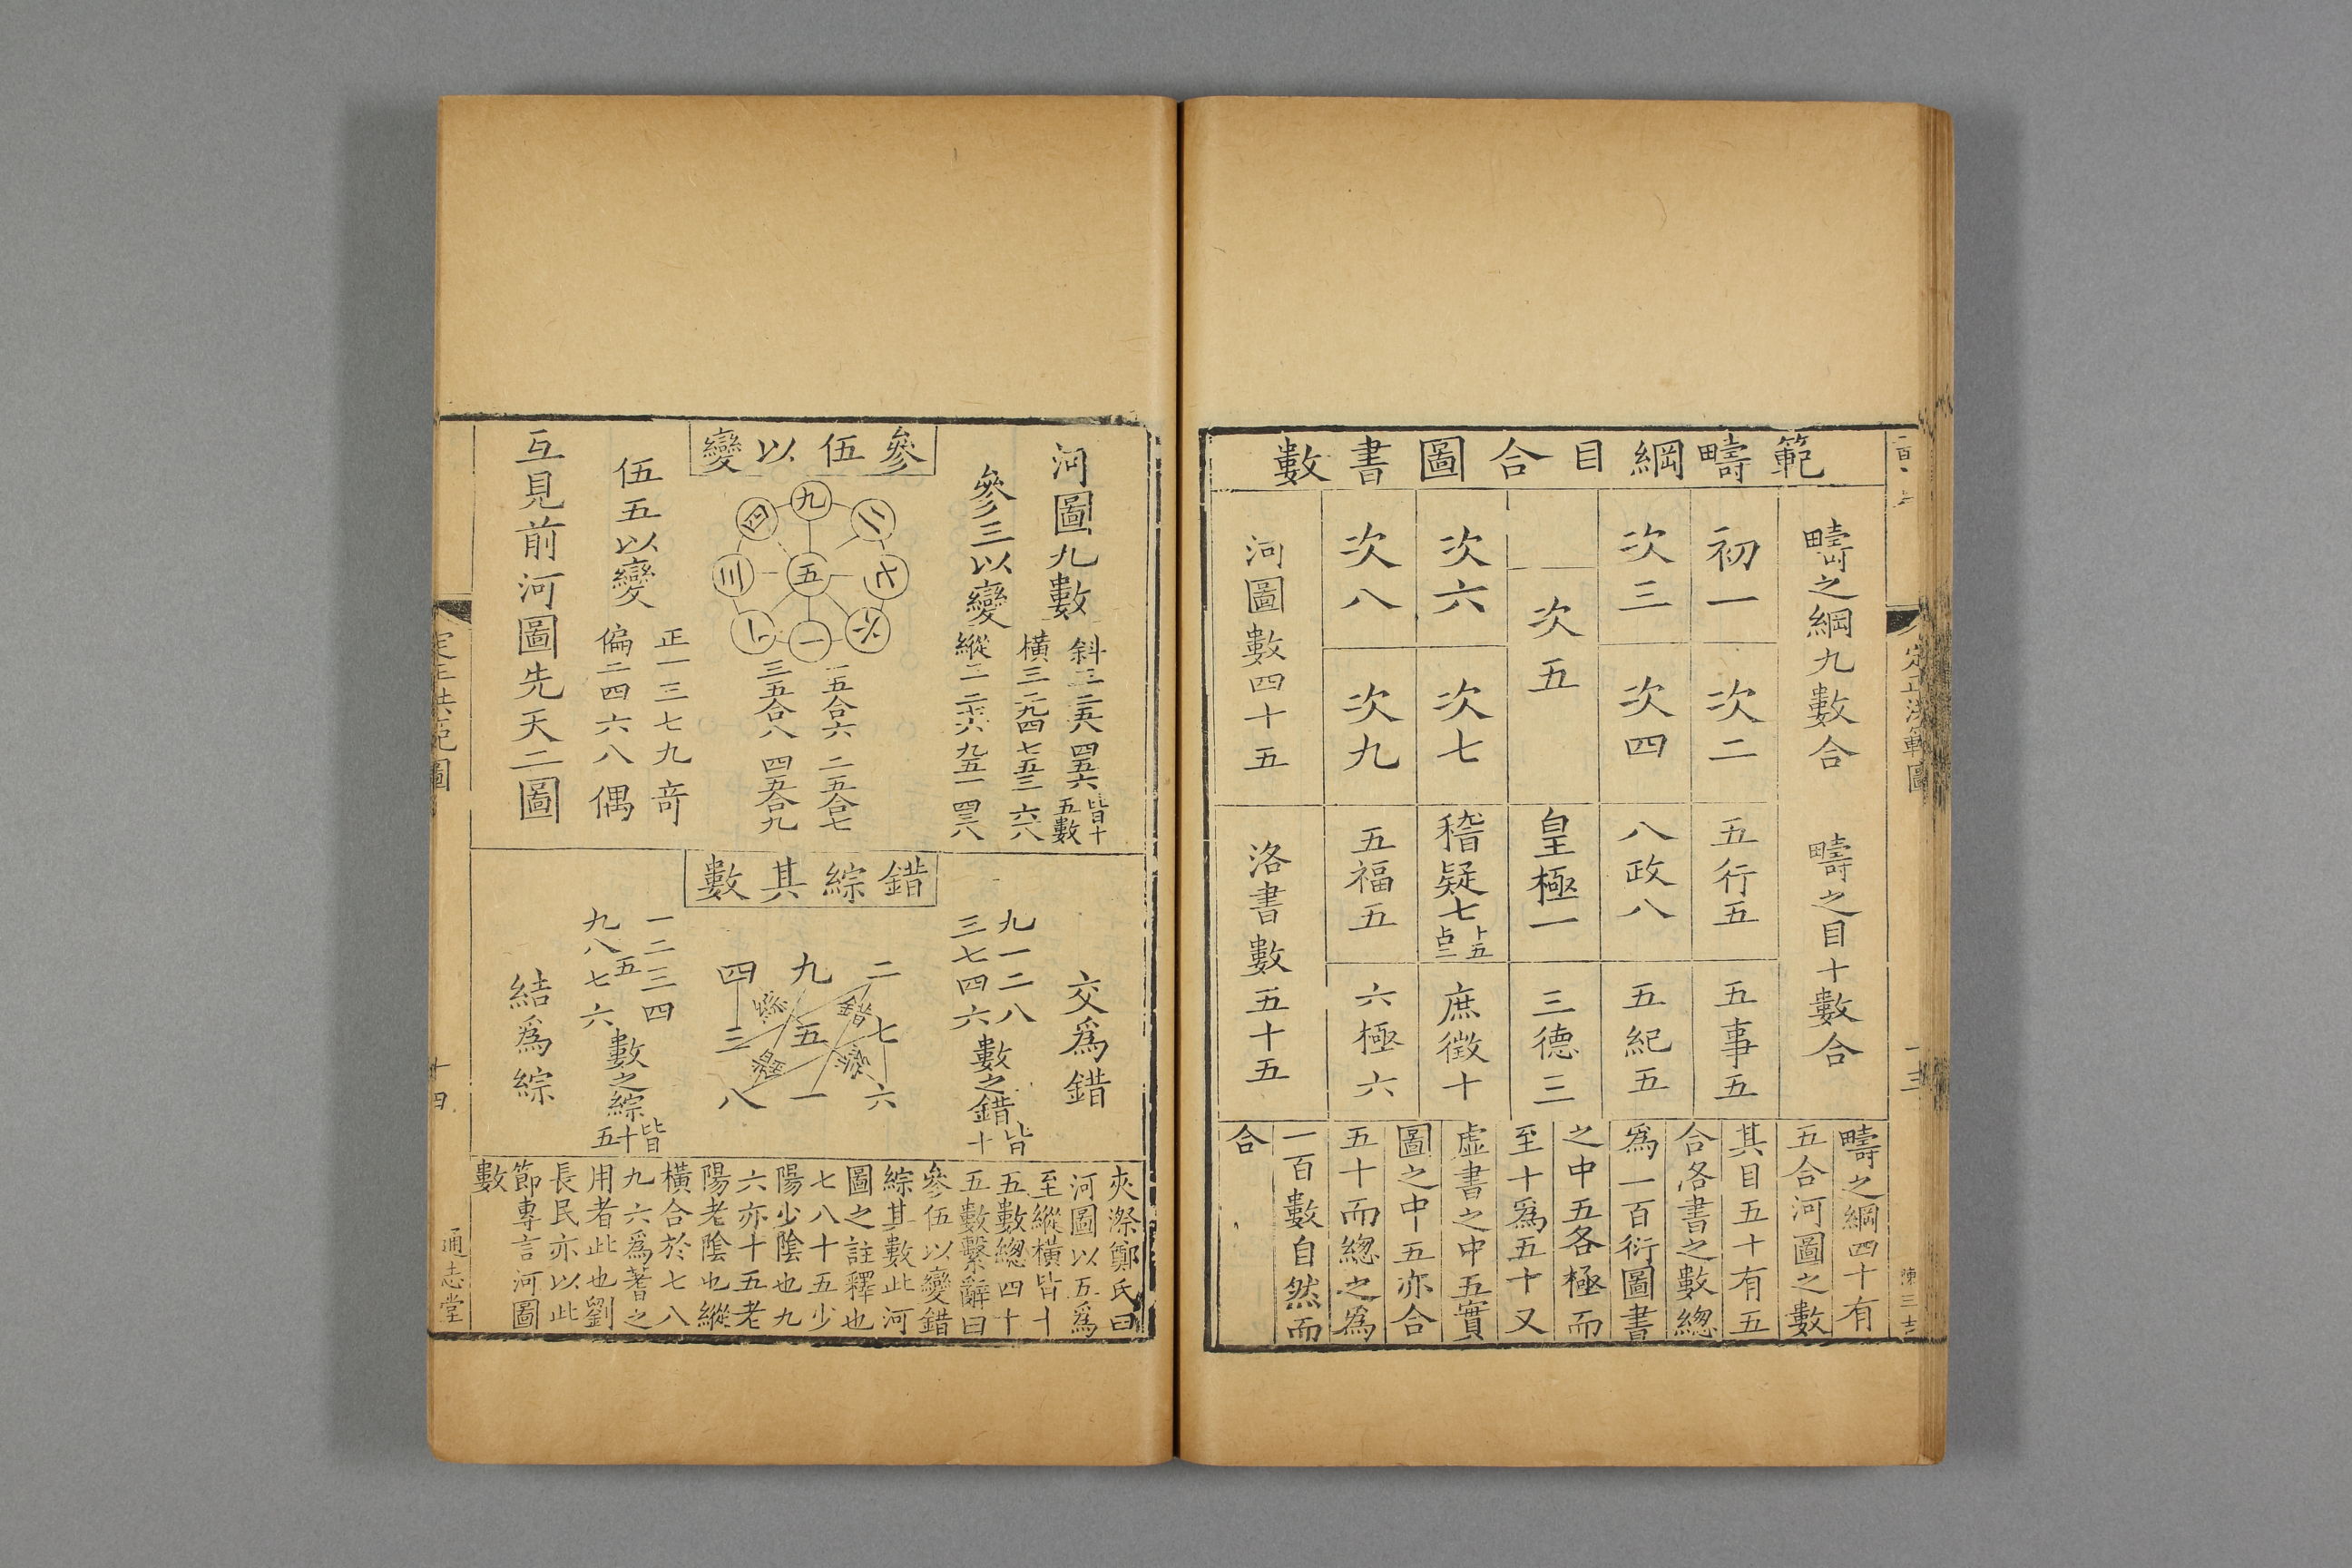 定正洪範圖
陳三吉
範疇綱目合圖書數
疇之綱九數合
疇之目十數合
初一
次二
五行五
五事五
次三
次四
八政八
五紀五
次五
皇極一
三德三
次六
次七
稽疑七
卜五
占二
庶徵十
次八
次九
五福五
六極六
河圖數四十五
洛書數五十五
疇之綱四十有
五合河圖之數
其目五十有五
合洛書之數總
爲一百衍圖書
之中五各極而
至十爲五十又
虛書之中五實
圖之中五亦合
五十而總之爲
一百數自然而
合
參伍以變
河圖九數
參三以變
斜三二五八 四五六
橫三二九四 七五三 六一八
縱三二七六 九五一 四三八
皆十
五數
九
二
七
六
一
八
三
四
五
一五合六 二五合七
三五合八 四五合九
伍五以變
正一三七九奇
偏二四六八偶
互見前河圖先天二圖
錯綜其數
交爲錯
九一二八
三七四六
數之錯
皆
十
二
七
六
九
五
一
四
三
八
錯
綜
錯
綜
一二三四
五
九八七六
數之綜
皆
十
五
結爲綜
夾漈鄭氏曰
河圖以五爲
至縱橫皆十
五數總四十
五數繫辭曰
參伍以變錯
綜其數此河
圖之註釋也
七八十五少
陽少陰也九
六亦十五老
陽老陰也縱
橫合於七八
九六爲蓍之
用者此也劉
長民亦以此
節專言河圖
數
定正洪範圖
十四
通志堂